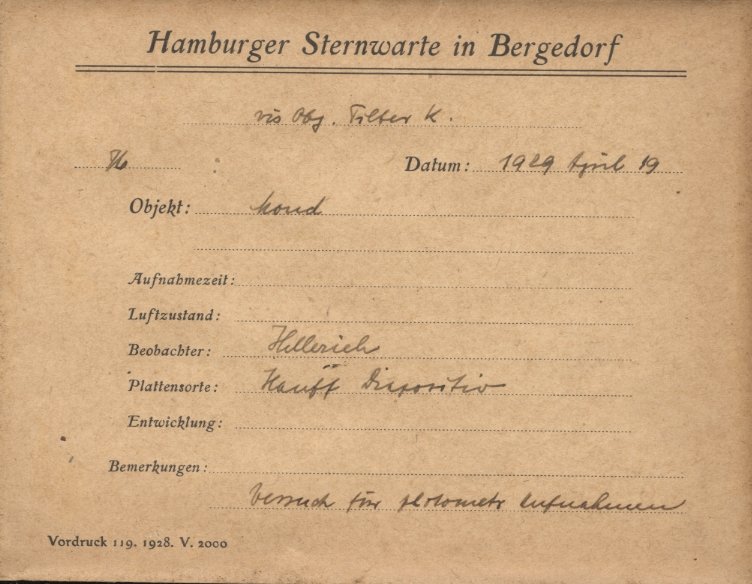 Hamburger Sternwarte in Bergedorf
vis Obj. Filter K.
Datum: 1929 April 19
Objekt: Mond
Aufnahmezeit:
Luftzustand:
Beobachter: Hellerich
Plattensorte: Hauff Diapositiv
Entwicklung:
Bemerkungen:
Versuch für photometr Aufnahmen
Vordruck 119. 1928. V. 2000